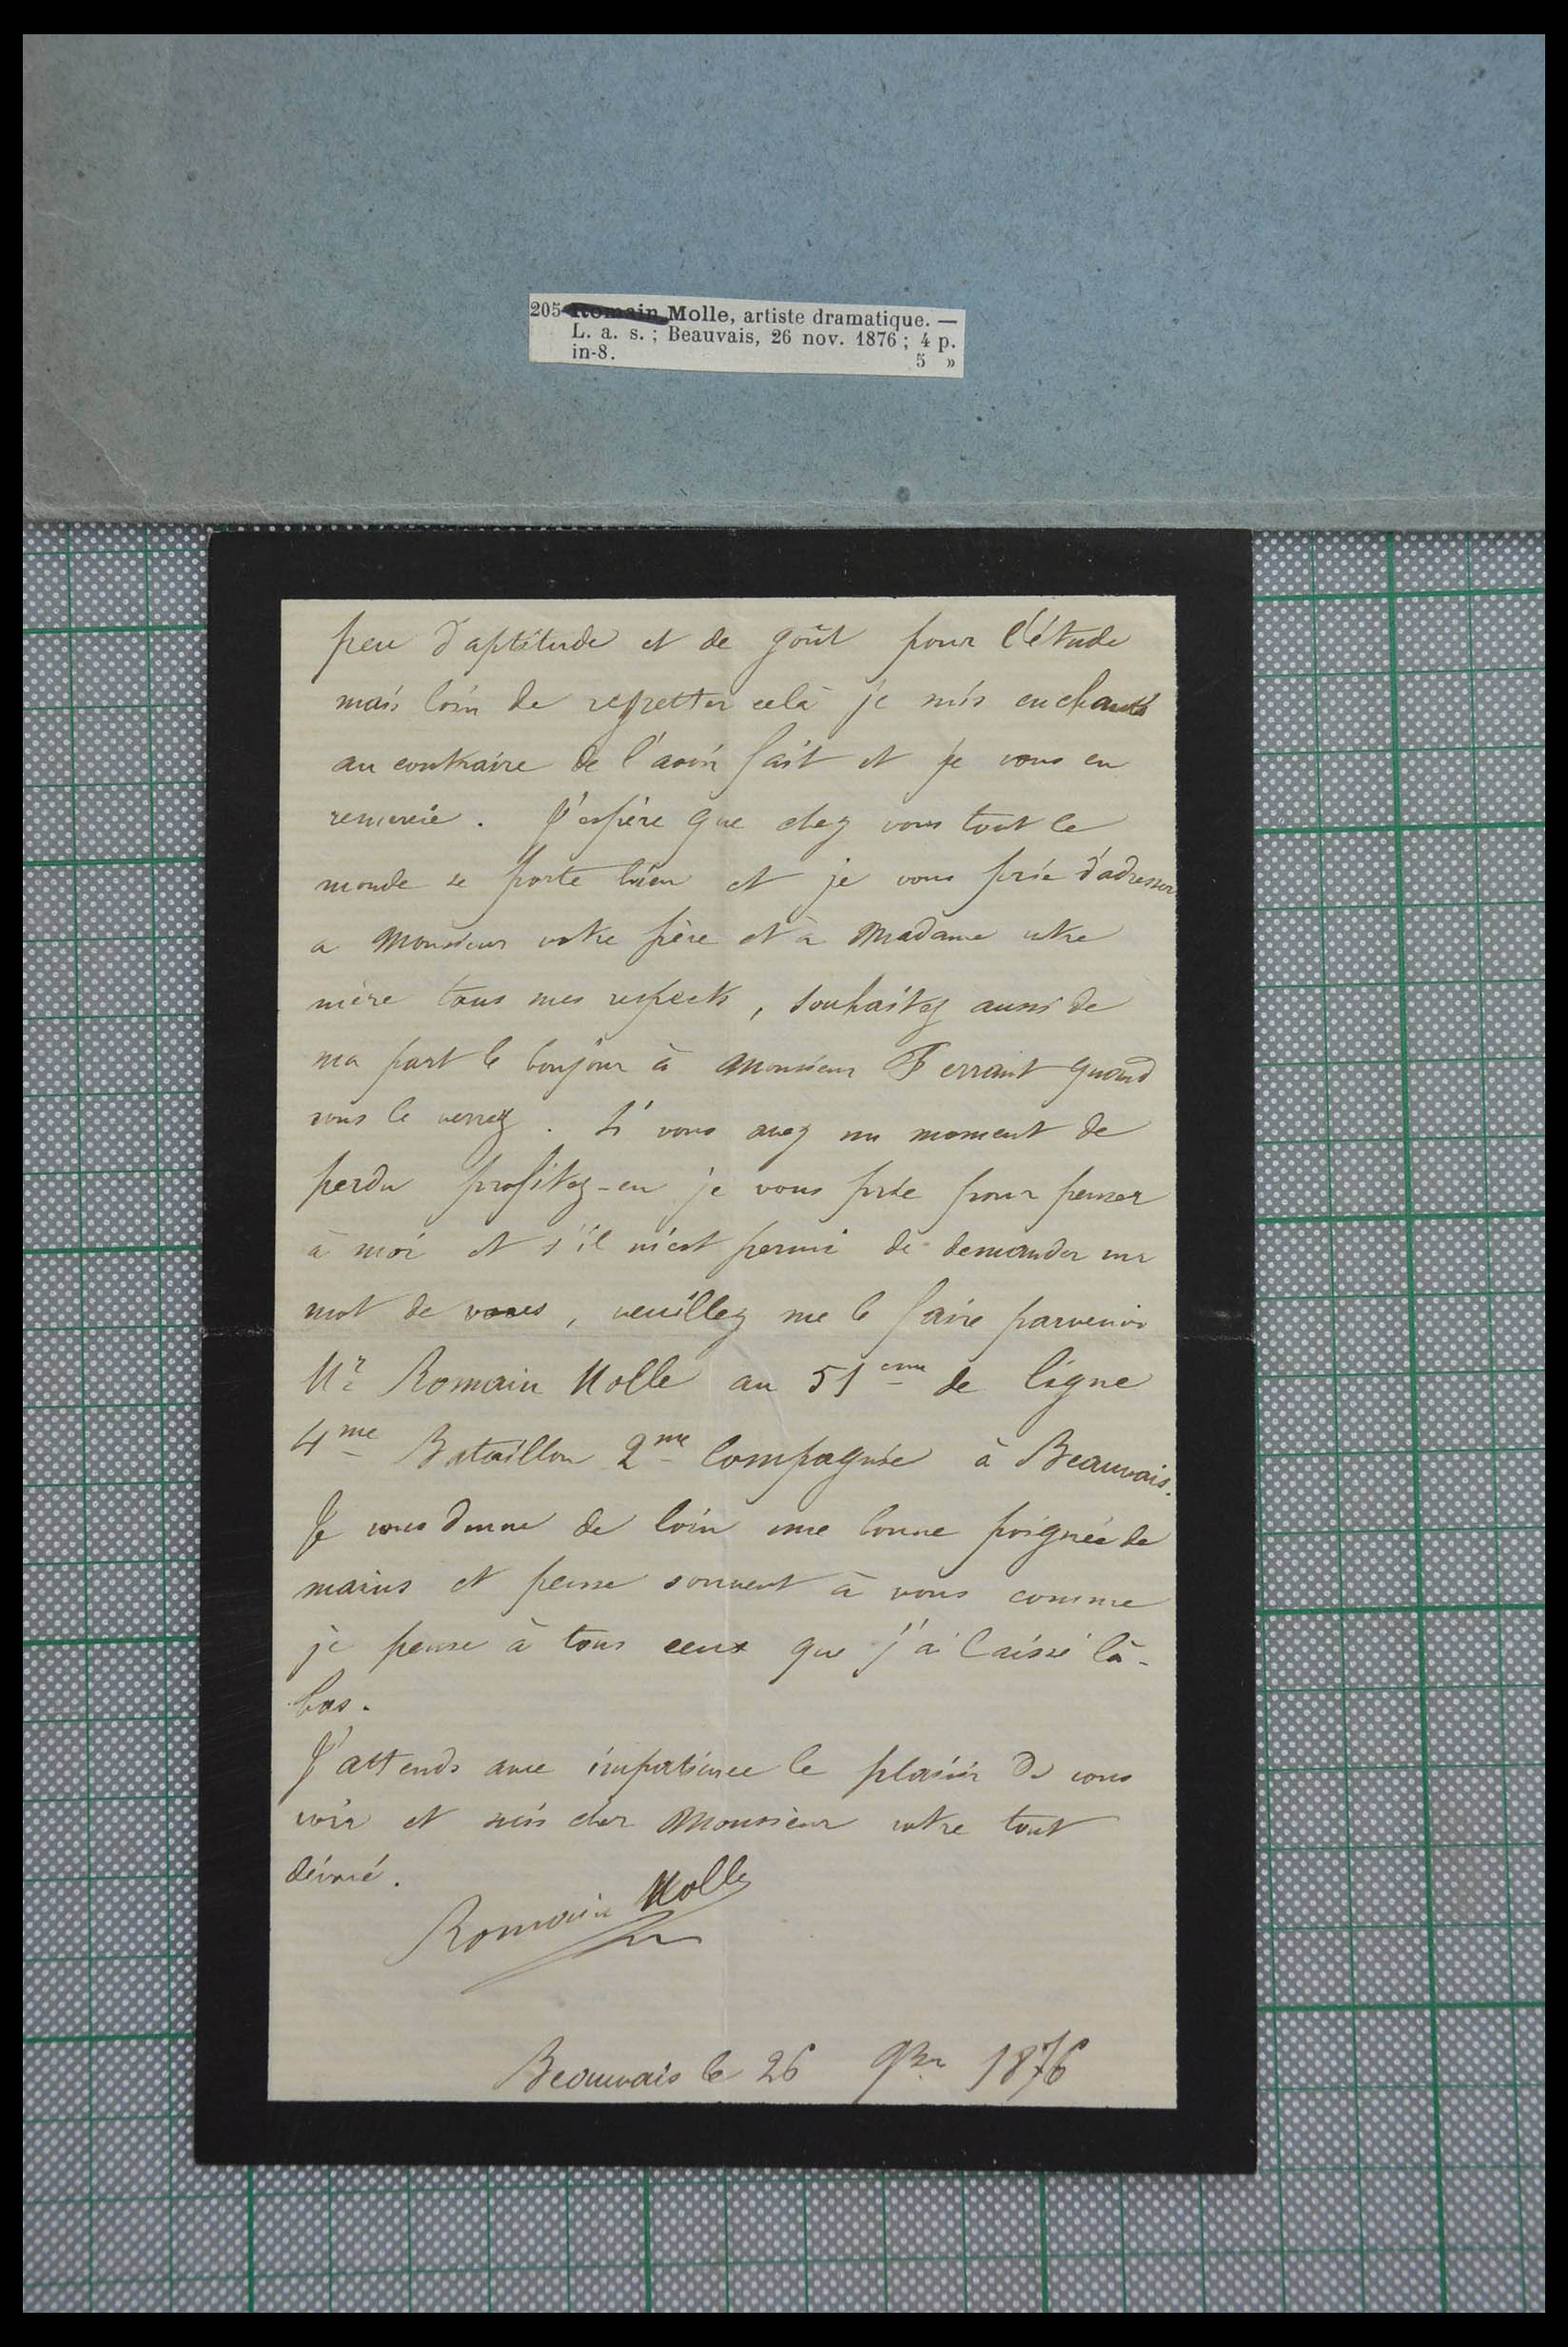 205 Romain Molle, artiste dramatique. —
L. a. s. ; Beauvais, 26 nov. 1876 ; 4 p.
in-8. 5 »
peu d'aptitude et de goût pour l'étude
mais loin de regretter celà je suis enchanté
au contraire de l'avoir fait et je vous en
remercie. J'espère que chez vous tout le
monde se porte bien et je vous prie d'adresser
a Monsieur votre père et à Madame votre
mère tous mes respects, souhaitez aussi de
ma part le bonjour à Monsieur Ferrant quand
vous le verrez. Si vous avez un moment de
perdu profitez-en je vous prie pour penser
à moi et s'il m'est permi de demander un
mot de vous, veuillez me le faire parvenir
Mr Romain Molle au 51eme de ligne
4me Bataillon 2me Compagnie à Beauvais.
Je vous donne de loin une bonne poignée de
mains et pense souvent à vous comme
je pense à tous ceux que j'ai laissé là-
bas.
J'attends avec impatience le plaisir de vous
voir et suis cher Monsieur votre tout
dévoué.
Romain Molle
Beauvais le 26 9bre 1876